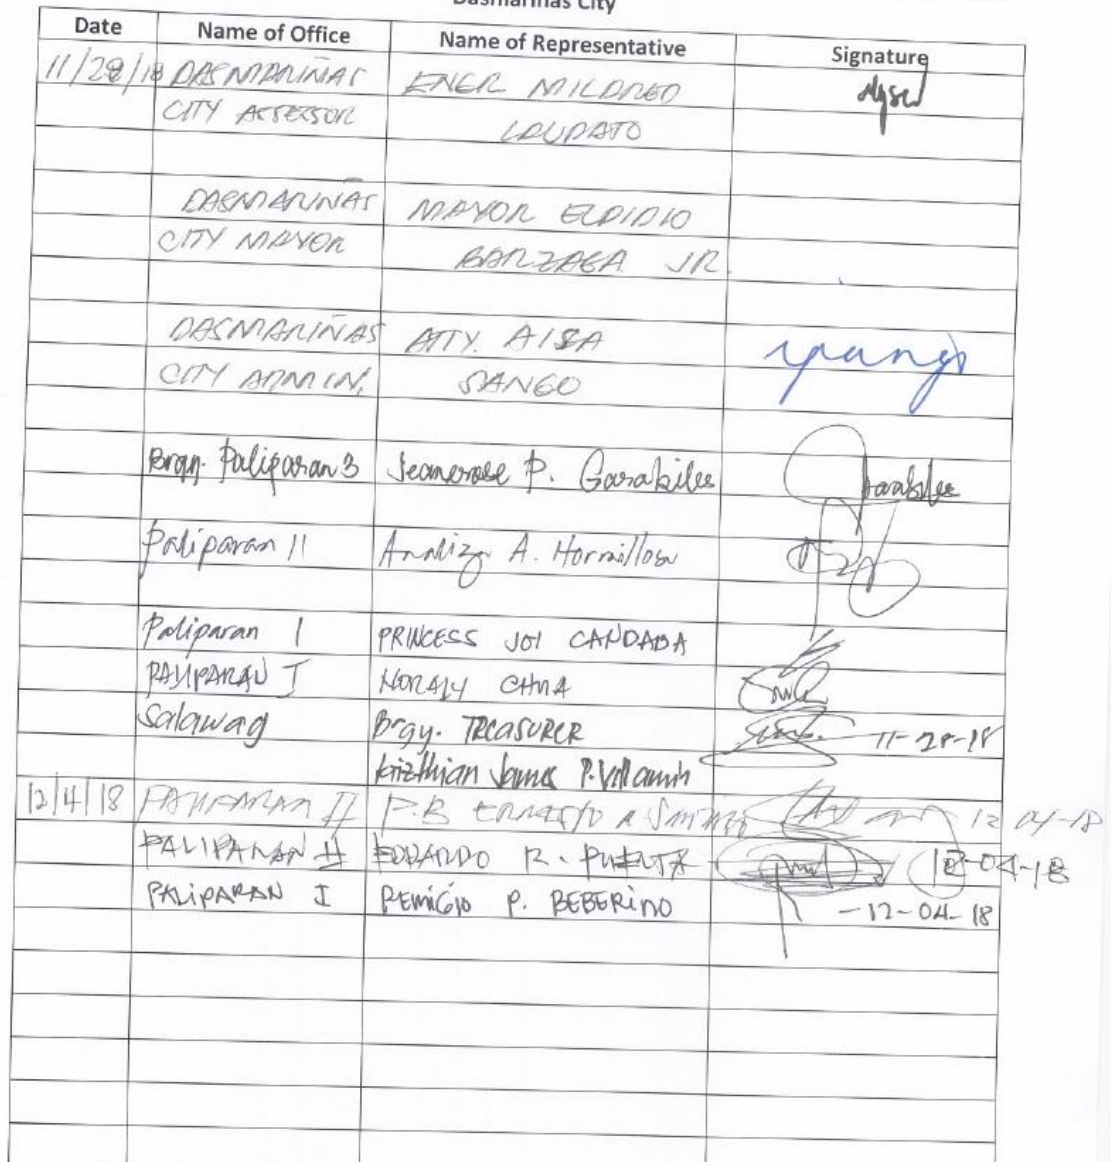 Dasmarinas City
Date Name of Office Name of Representative Signature
11/28/18 DASMARIÑAS ENGR. MILDRED
CITY ASSESSOR LAUDATO
DASMARIÑAS MAYOR ELPIDIO
CITY MAYOR BARZAGA JR.
DASMARIÑAS ATTY. AISA
CITY ADMIN. SANGO
Brgy. Paliparan 3 Jeanerose P. Garabiles
Paliparan II Analiza A. Hormillosa
Paliparan I PRINCESS JOI CANDADA
PALIPARAN I NORALY
Salawag Brgy. TREASURER 11-28-18
Krizthian James P. Villamin
12/4/18 PALIPARAN II P.B ERNESTO 12 04-18
PALIPARAN II EDUARDO R. PUENTA 12-04-18
PALIPARAN I REMIGIO P. BEBERINO -12-04-18